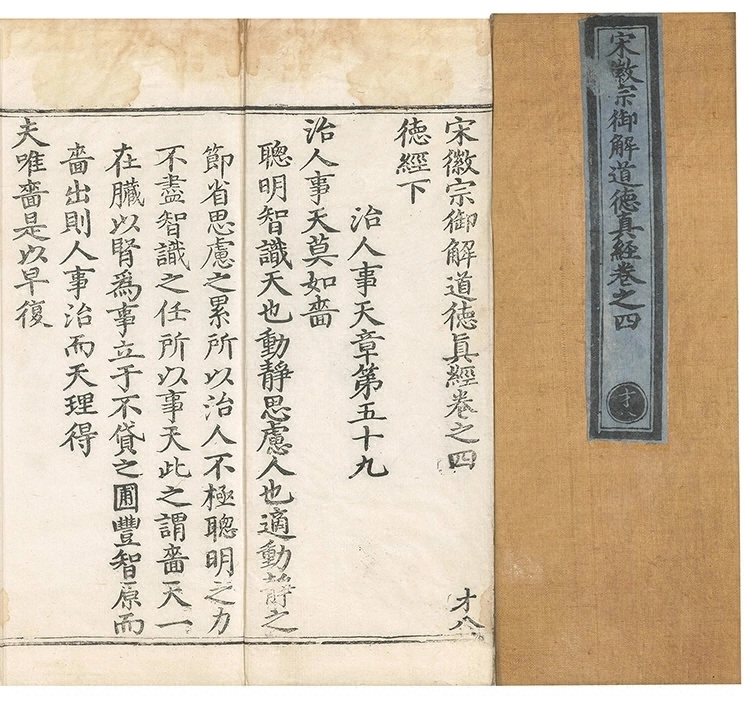 宋徽宗御解道德真經卷之四
才
宋徽宗御解道德真經卷之四
才八
德經下
治人事天章第五十九
治人事天莫如嗇
聰明智識天也動靜思慮人也適動靜之
節省思慮之累所以治人不極聰明之力
不盡智識之任所以事天此之謂嗇天一
在臟以腎爲事立于不貸之圃豐智原而
嗇出則人事治而天理得
夫唯嗇是以早復